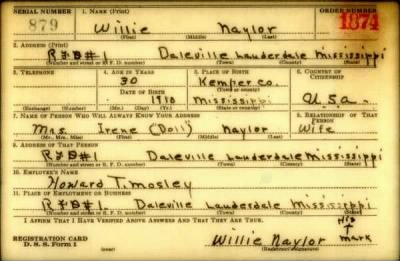 SERIAL NUMBER 1. NAME (Print) ORDER NUMBER
879 Willie Naylor 1874
(First) (Middle) (Last)
2. ADDRESS (Print)
R.F.D#1 Daleville Lauderdale Mississippi
(Number and street or R. F. D. number) (Town) (County) (State)
3. TELEPHONE 4. AGE IN YEARS 5. PLACE OF BIRTH 6. COUNTRY OF CITIZENSHIP
30 Kemper Co.
DATE OF BIRTH (Town) (County)
1910 Mississippi U.S.A.
(Exchange) (Number) (Mo.) (Day) (Yr.) (State) (Country)
7. NAME OF PERSON WHO WILL ALWAYS KNOW YOUR ADDRESS 8. RELATIONSHIP OF THAT PERSON
Mrs. Irene (Doll) Naylor Wife
(Mr., Mrs., Miss) (First) (Middle) (Last)
9. ADDRESS OF THAT PERSON
R.F.D#1. Daleville Lauderdale Mississippi
(Number and street or R. F. D. number) (Town) (County) (State)
10. EMPLOYER'S NAME
Howard T. mosley
11. PLACE OF EMPLOYMENT OR BUSINESS
R.F.D#1. Daleville Lauderdale Mississippi
(Number and street or R. F. D. number) (Town) (County) (State)
I AFFIRM THAT I HAVE VERIFIED ABOVE ANSWERS AND THAT THEY ARE TRUE.
His
REGISTRATION CARD Willie Naylor mark
D. S. S. Form 1 (over) (Registrant's signature)